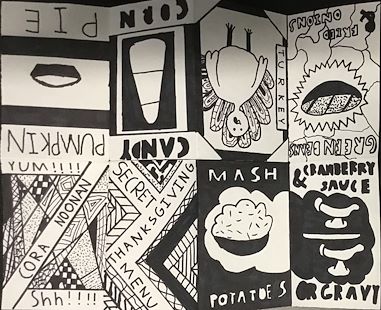 PUMPKIN
PIE
CANDY
CORN
TURKEY
GREEN BEANS
& FRIED
ONIONS
YUM!!!!
CORA NOONAN
Shh!!!!
SECRET
THANKSGIVING
MENU
MASH
POTATOES
CRANBERRY
& SAUCE
OR GRAVY